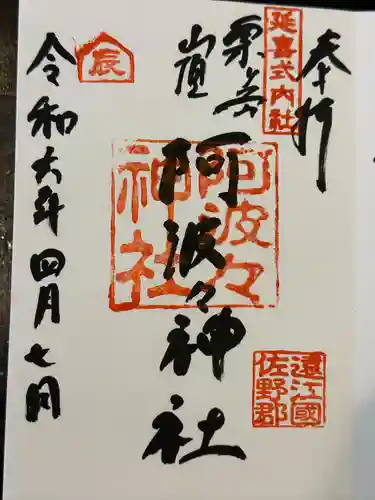 奉拝
延喜式内社
粟ヶ岳
山頂
阿波々神社
阿波々神社
遠江國
佐野郡
辰
令和六年四月七日